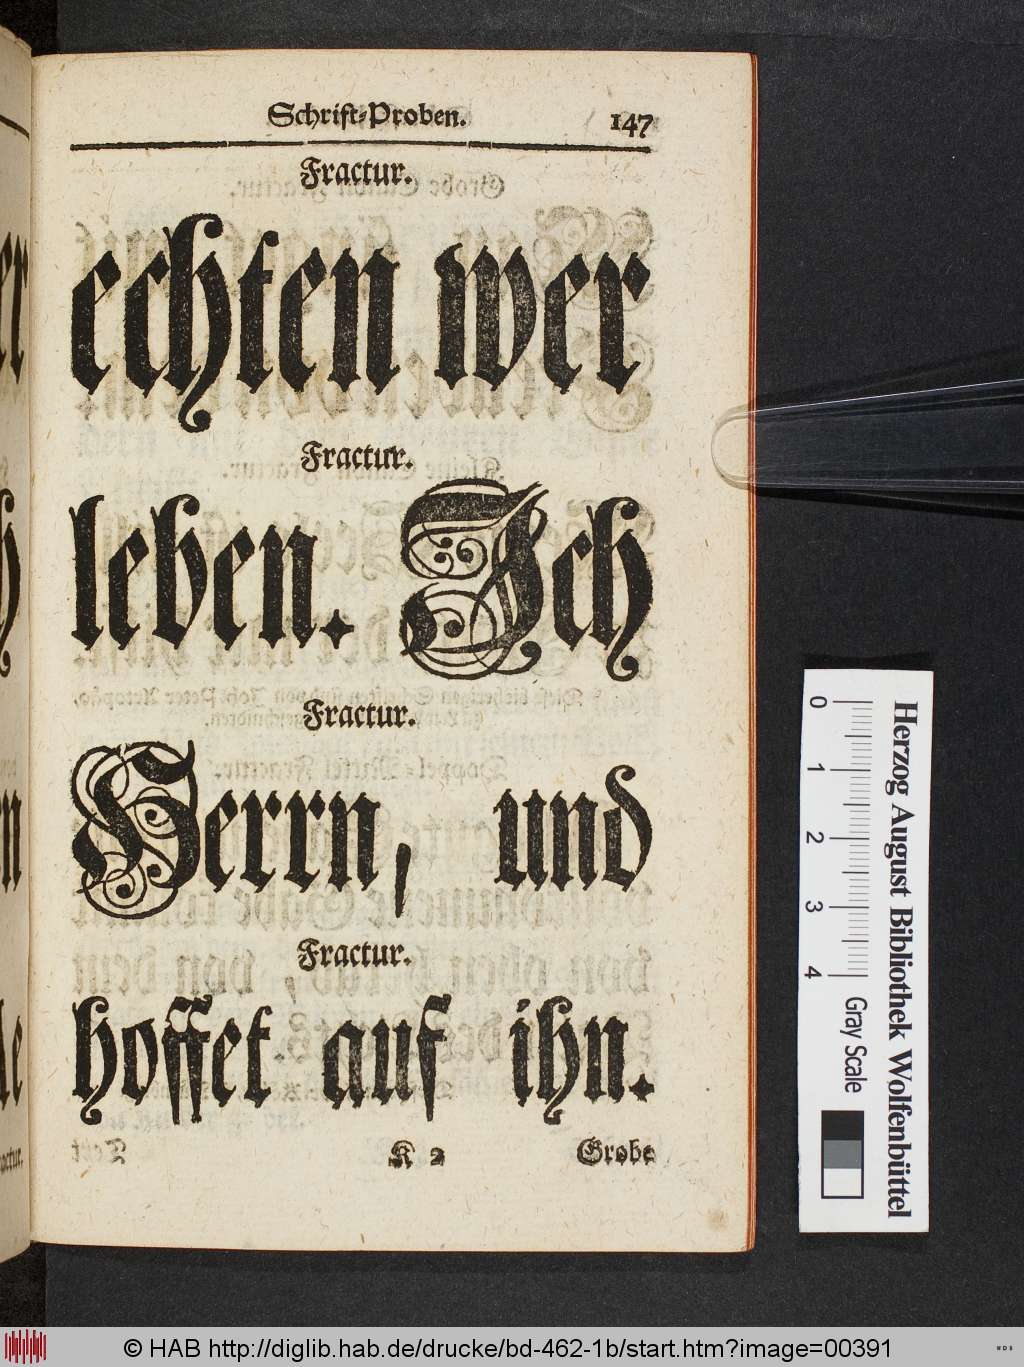 Schrift-Proben. 147
Fractur.
echten wer
Fractur.
leben. Ich
Fractur.
Herrn, und
Fractur.
hoffet auf ihn.
K 2 Grobe
Herzog August Bibliothek Wolfenbüttel
0 1 2 3 4 Gray Scale
© HAB http://diglib.hab.de/drucke/bd-462-1b/start.htm?image=00391